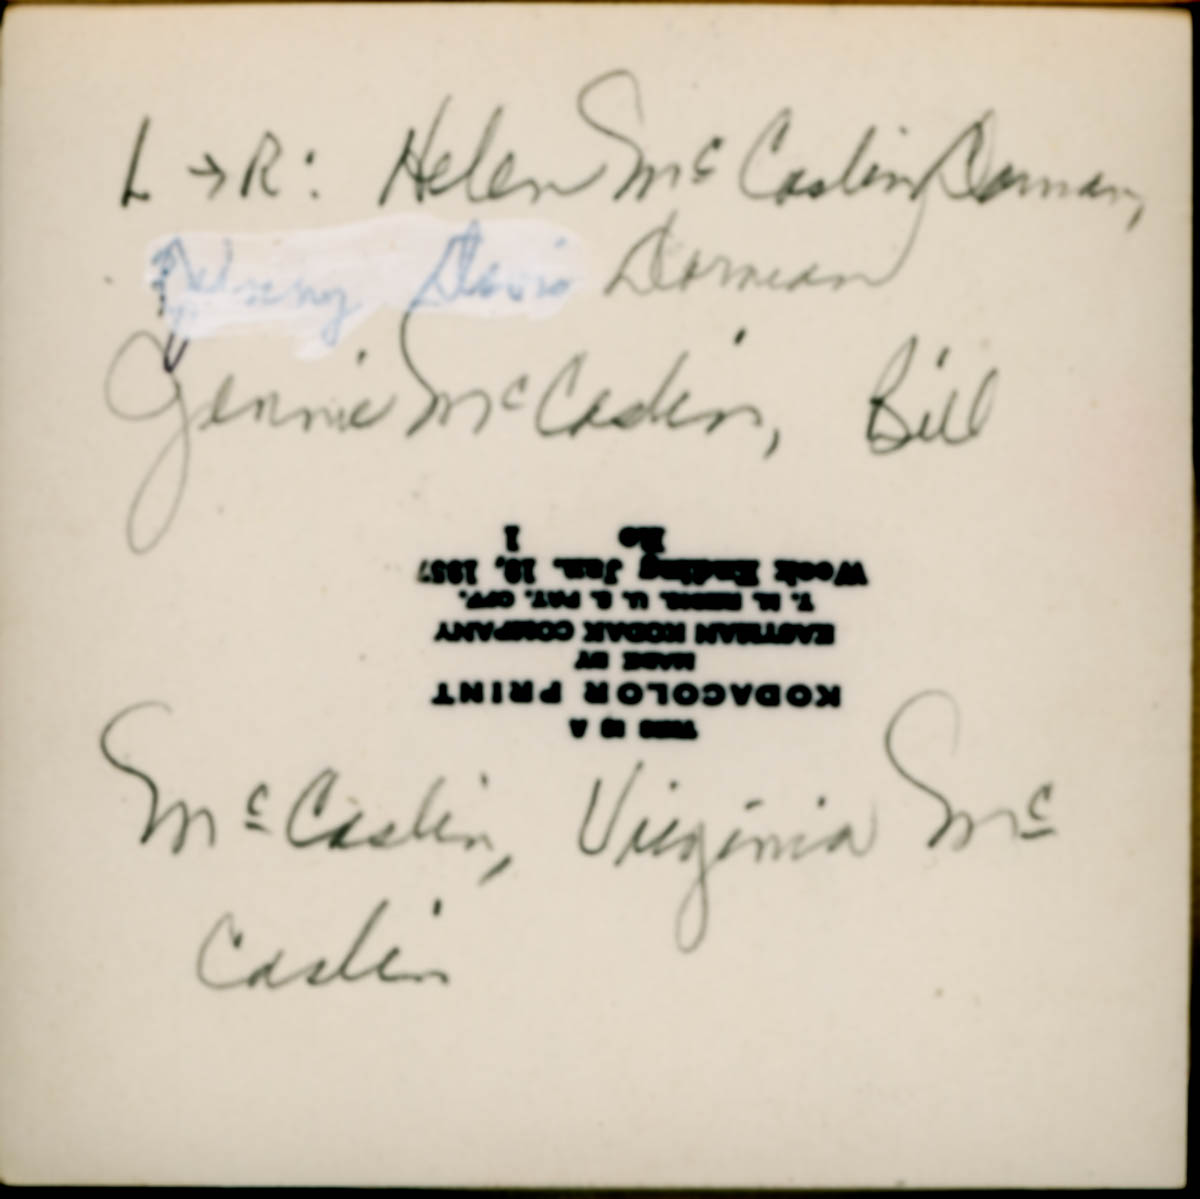 L → R: Helen Mc Caslin Dorman,
Johnny Davis Dorman
Jennie Mc Caslin, Bill
THIS IS A
KODACOLOR PRINT
MADE BY
EASTMAN KODAK COMPANY
T. M. REGIS. U. S. PAT. OFF.
Week Ending Jan. 19, 1957
1
Mc Caslin, Virginia Mc
Caslin